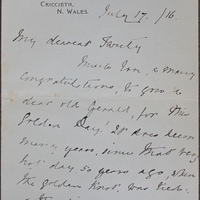 CRICCIETH,
N. WALES.
July 17. /16.
My dearest
Much love, & many
congratulations, to you &
dear old Gerald, for this
Golden Day! It does seem
many years, since that very
hot day, 50 years ago, when
the golden knot, was